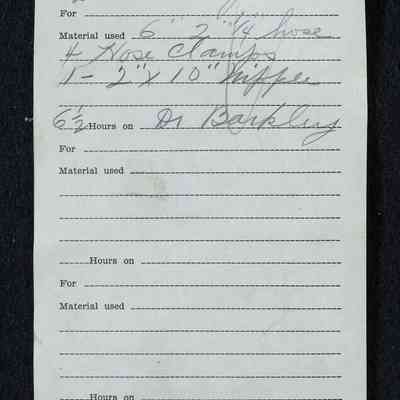 For
Material used 6" 2"1/4 hose
4 Hose Clamps
1 - 2" X 10" Nipple
6 1/2 Hours on Dr Barkley
For
Material used
Hours on
For
Material used
Hours on